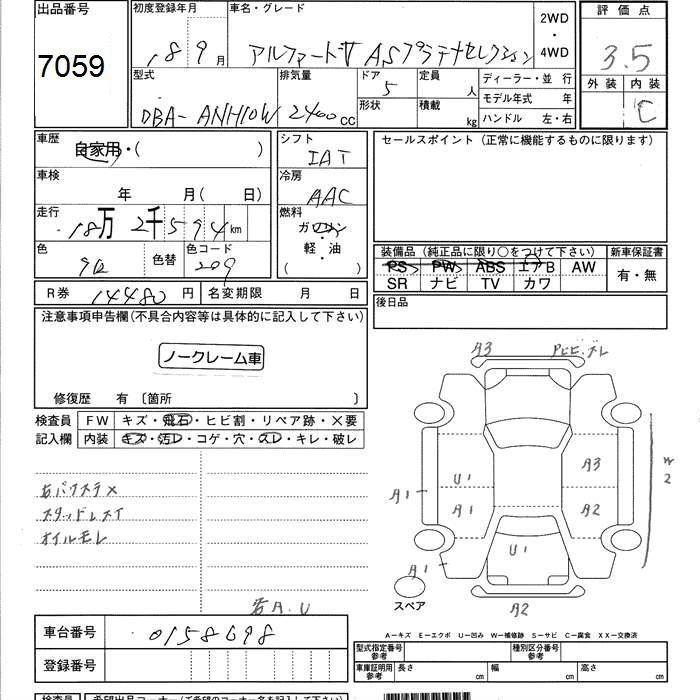 出品番号 初度登録年月 車名・グレード 2WD・4WD 評価点
7059 18 9月 アルファードV ASプラチナセレクション 3.5
外装 内装
C
型式 排気量 ドア 定員 ディーラー・並 行
DBA-ANH10W 2400cc 5 人
形状 積載 モデル年式 年
kg ハンドル 左・右
車歴 自家用・( ) シフト セールスポイント (正常に機能するものに限ります)
IAT
車検 年 月( 日) 冷房
AAC
走行 18万 2千594km 燃料
ガソリン
軽・油
( )
色 色替 色コード 209
装備品 (純正品に限り○をつけて下さい) 新車保証書
PS PW ABS エアB AW 有・無
SR ナビ TV カワ
R券 14480円 名変期限 月 日 後日品
注意事項申告欄(不具合内容等は具体的に記入して下さい)
ノークレーム車
修復歴 有 〔箇所 〕
検査員 FW キズ・飛石・ヒビ割・リペア跡・×要
記入欄 内装 キズ・汚レ・コゲ・穴・スレ・キレ・破レ
A3
A3
U1
W2
A1
A1 A2
スタッドレスタイ
オイルモレ
U1
A1
スペア
A2
A.U
A-キズ E-エクボ U-凹み W-補修跡 S-サビ C-腐食 XX-交換済
車台番号 0158698
型式指定番号 参考 種別区分番号 参考
登録番号
車庫証明用 参考 長さ cm 幅 cm 高さ cm
検査員 希望出品コーナー(ご希望のコーナー名を記入